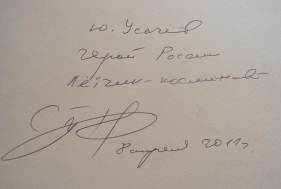 Ю. Усачёв
Герой России
Лётчик-космонавт
8 апреля 2011г.